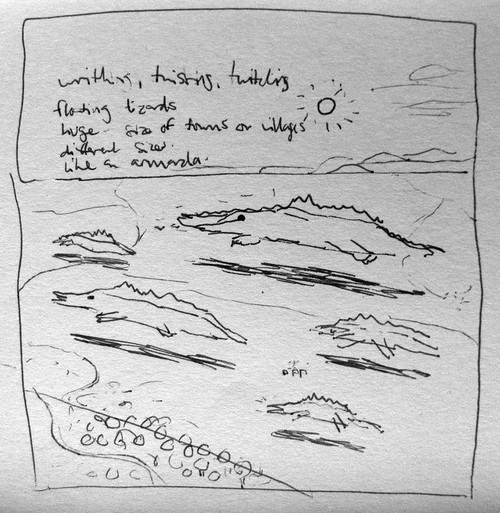 writhing, twisting, twitching
floating lizards
huge - size of towns or villages
different sizes.
like an armada.